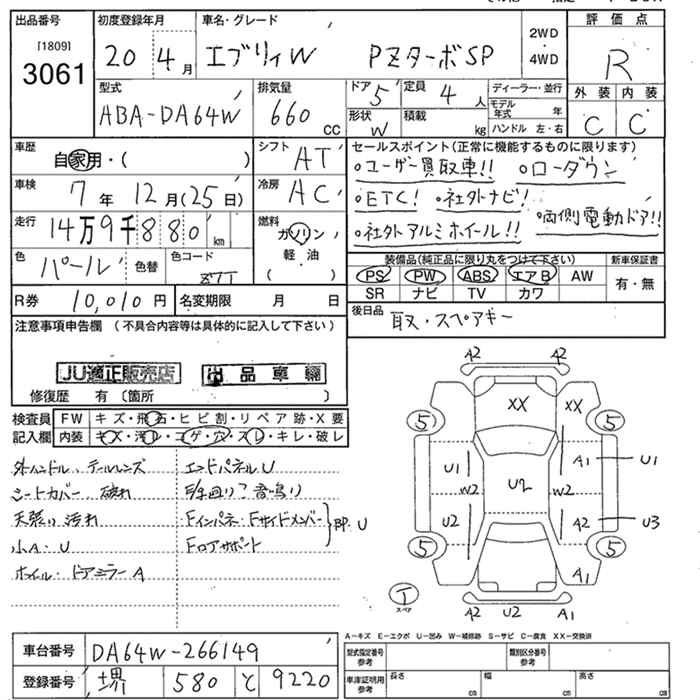 出品番号 初度登録年月 車名・グレード 評価点
[1809] 3061 20 4月 エブリィW PZターボSP 2WD 4WD R
型式 排気量 ドア 5 定員 4人 ディーラー・並行 外装 内装
ABA-DA64W 660cc 形状 W 積載 kg モデル年式 年 ハンドル 左・右 C C
車歴 自家用・( ) シフト AT セールスポイント(正常に機能するものに限ります)
・ユーザー買取車!! ・ローダウン
車検 7年12月(25日) 冷房 AC ・ETC! ・社外ナビ!
走行 14万9千880km 燃料 ガソリン 軽油 ( ) ・社外アルミホイール!! ・両側電動ドア!!
色 パール 色替 色コード 装備品(純正品に限り丸をつけて下さい) 新車保証書
PS PW ABS エアB AW 有・無
R券 10,010円 名変期限 月 日 SR ナビ TV カワ
注意事項申告欄 (不具合内容等は具体的に記入して下さい) 後日品 取ス・スペアキー
JU適正販売店 出品車輌
修復歴 有 〔箇所 〕
検査員記入欄 FW キズ・飛石・ヒビ割・リペア跡・X要
内装 キズ・汚レ・コゲ・穴・スレ・キレ・破レ
外ハンドル・テールレンズ エンドパネルU
シートカバー 破れ 足回り?音鳴り
天張り汚れ Fインパネ・Fサイドメンバー 即U
小A・U Fロアサポート
ホイル・ドアミラーA
A2 A2
XX XX
5 5
U1 A1 U1
W2 U2 W2
U2 A2 U3
5 5
A1
T スペア
A2 U2 A1
A-キズ E-エクボ U-凹み W-補修跡 S-サビ C-腐食 XX-交換済
車台番号 DA64W-266149 型式指定番号 参考 類別区分番号 参考
登録番号 堺 580 と 9220 車庫証明用 参考 長さ cm 幅 cm 高さ cm